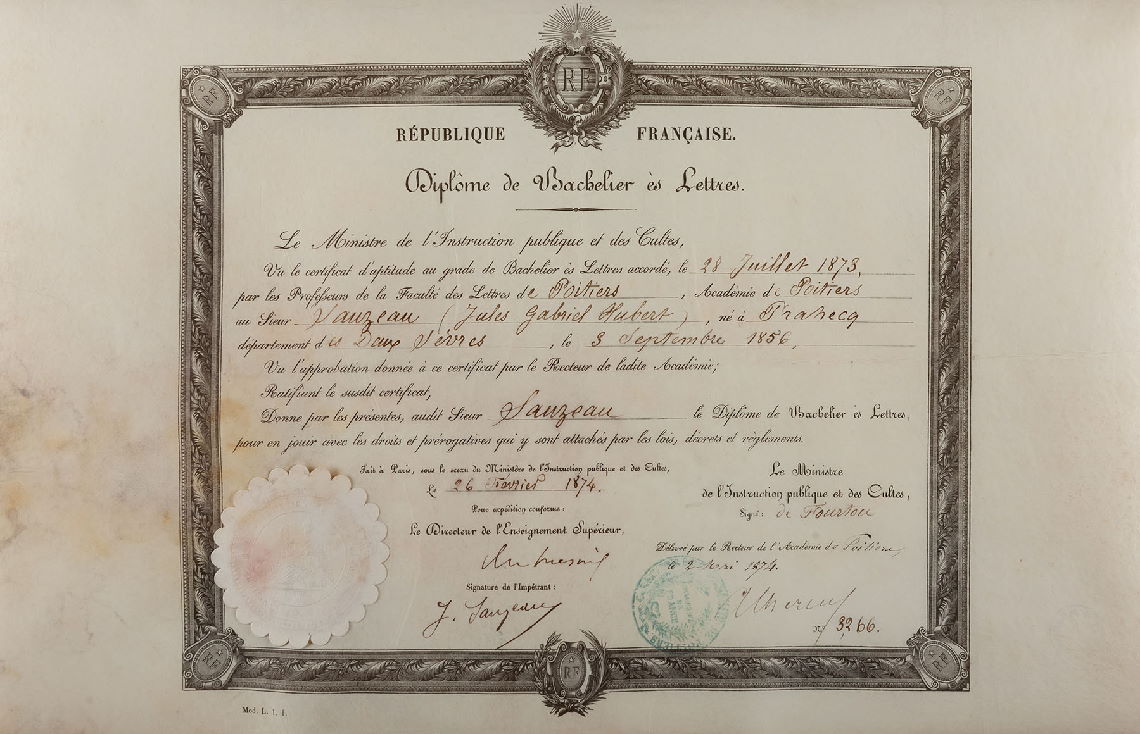 RF
RÉPUBLIQUE FRANÇAISE.
Diplôme de Bachelier ès Lettres.
Le Ministre de l'Instruction publique et des Cultes,
Vu le certificat d'aptitude au grade de Bachelier ès Lettres accordé, le 28 Juillet 1873,
par les Professeurs de la Faculté des Lettres de Poitiers, Académie de Poitiers
au Sieur Sauzeau (Jules Gabriel Hubert), né à Prahecq
département des Deux Sèvres, le 3 Septembre 1856,
Vu l'approbation donnée à ce certificat par le Recteur de ladite Académie;
Ratifiant le susdit certificat,
Donne par les présentes, audit Sieur Sauzeau le Diplôme de Bachelier ès Lettres,
pour en jouir avec les droits et prérogatives qui y sont attachés par les lois, décrets et règlements.
Fait à Paris, sous le sceau du Ministère de l'Instruction publique et des Cultes,
Le 26 Février 1874.
Pour expédition conforme:
Le Directeur de l'Enseignement Supérieur,
Signature de l'Impétrant:
J. Sauzeau
Le Ministre
de l'Instruction publique et des Cultes,
Signé: de Fourtou
Délivré par le Recteur de l'Académie de Poitiers,
le 2 Mai 1874.
No 3266.
RF
Mod. L. 1. 1.